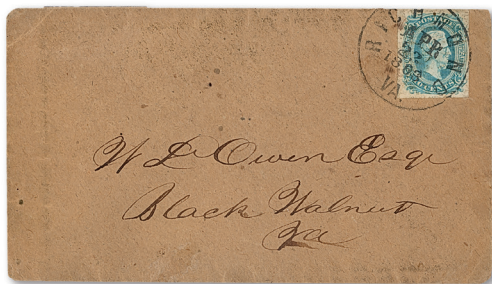 RICHMOND
APR
1863
VA.
W L Owen Esqr
Black Walnut
Va